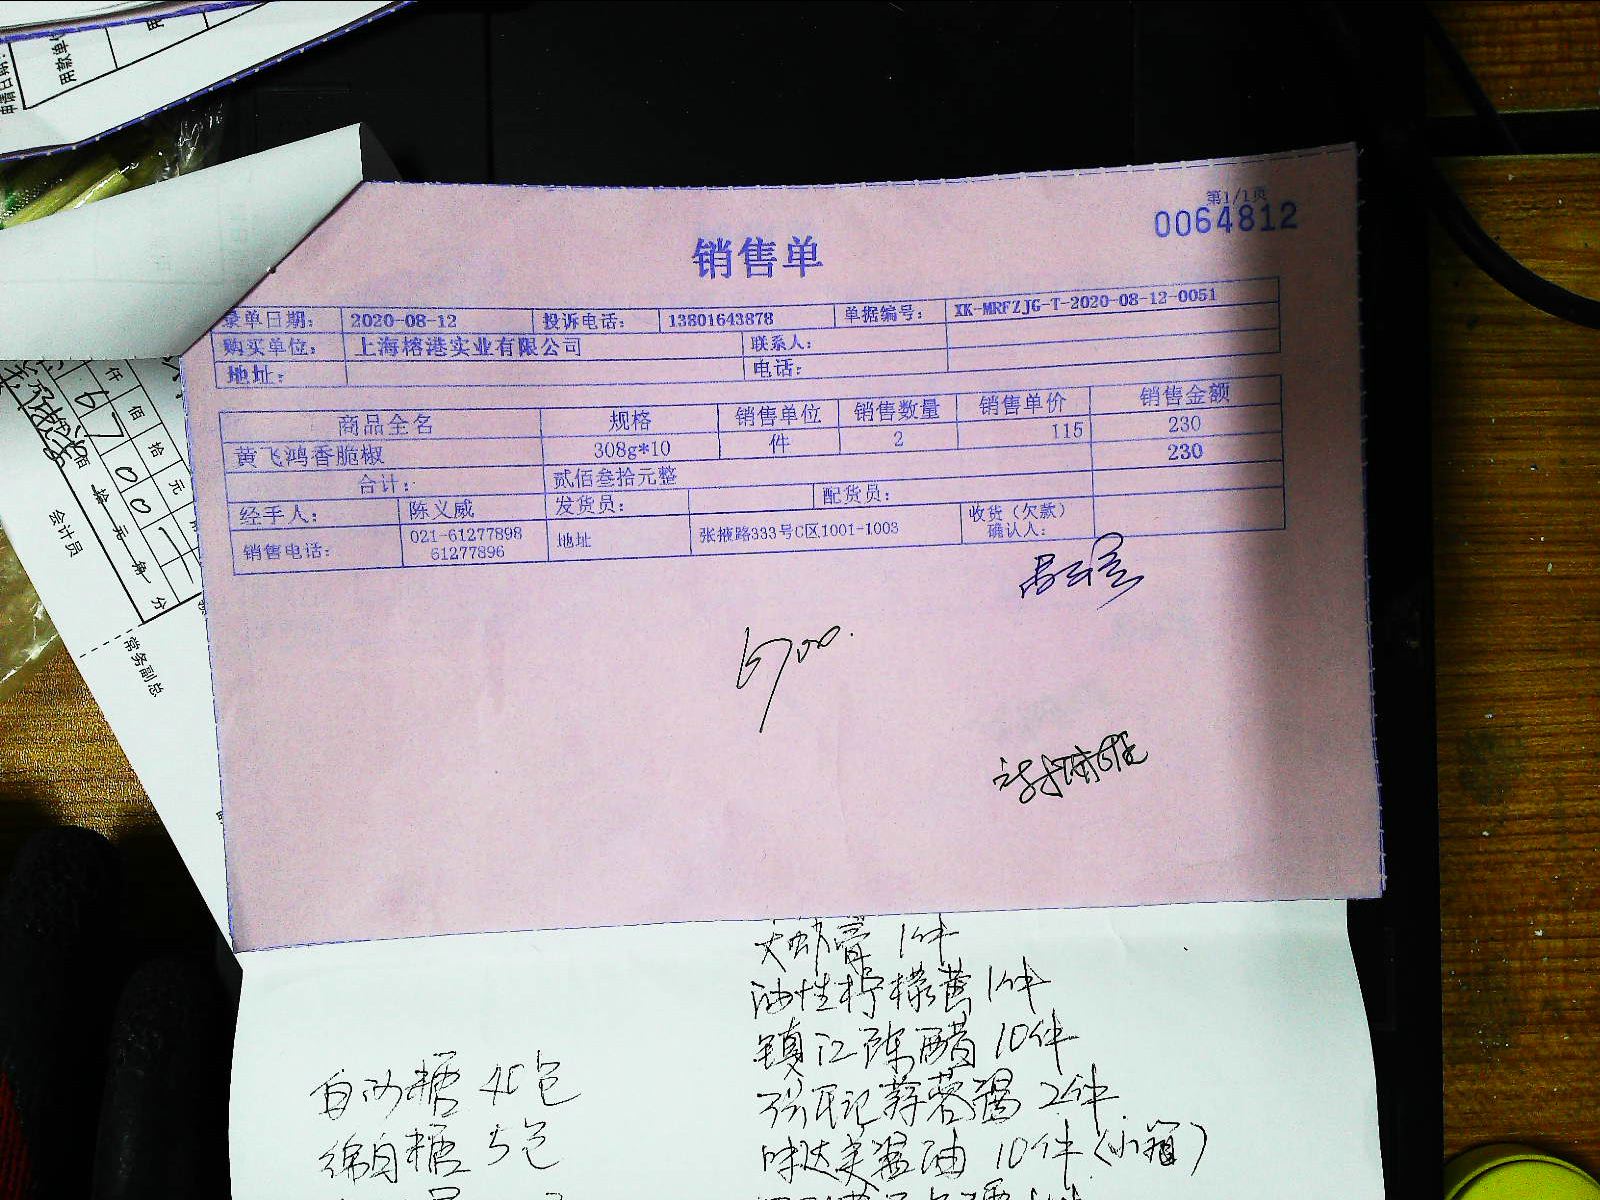 第1/1页
0064812
销售单
录单日期： 2020-08-12 投诉电话： 13801643878 单据编号： XK-MRFZJG-T-2020-08-12-0051
购买单位： 上海榕港实业有限公司 联系人：
地址： 电话：
商品全名 规格 销售单位 销售数量 销售单价 销售金额
黄飞鸿香脆椒 308g*10 件 2 115 230
合计： 贰佰叁拾元整 230
经手人： 陈义威 发货员： 配货员： 收货（欠款）确认人：
销售电话： 021-61277898 61277896 地址 张掖路333号C区1001-1003
用款单
申请日期：
仟 佰 拾 元
6 7 0 0
佰 拾 元 角 分
会计员
常务副总
大虾膏 1件
油性柠檬黄 1件
镇江陈醋 10件
蒜蓉酱 2件
味达美酱油 10件（小箱）
白砂糖 40包
绵白糖 5包